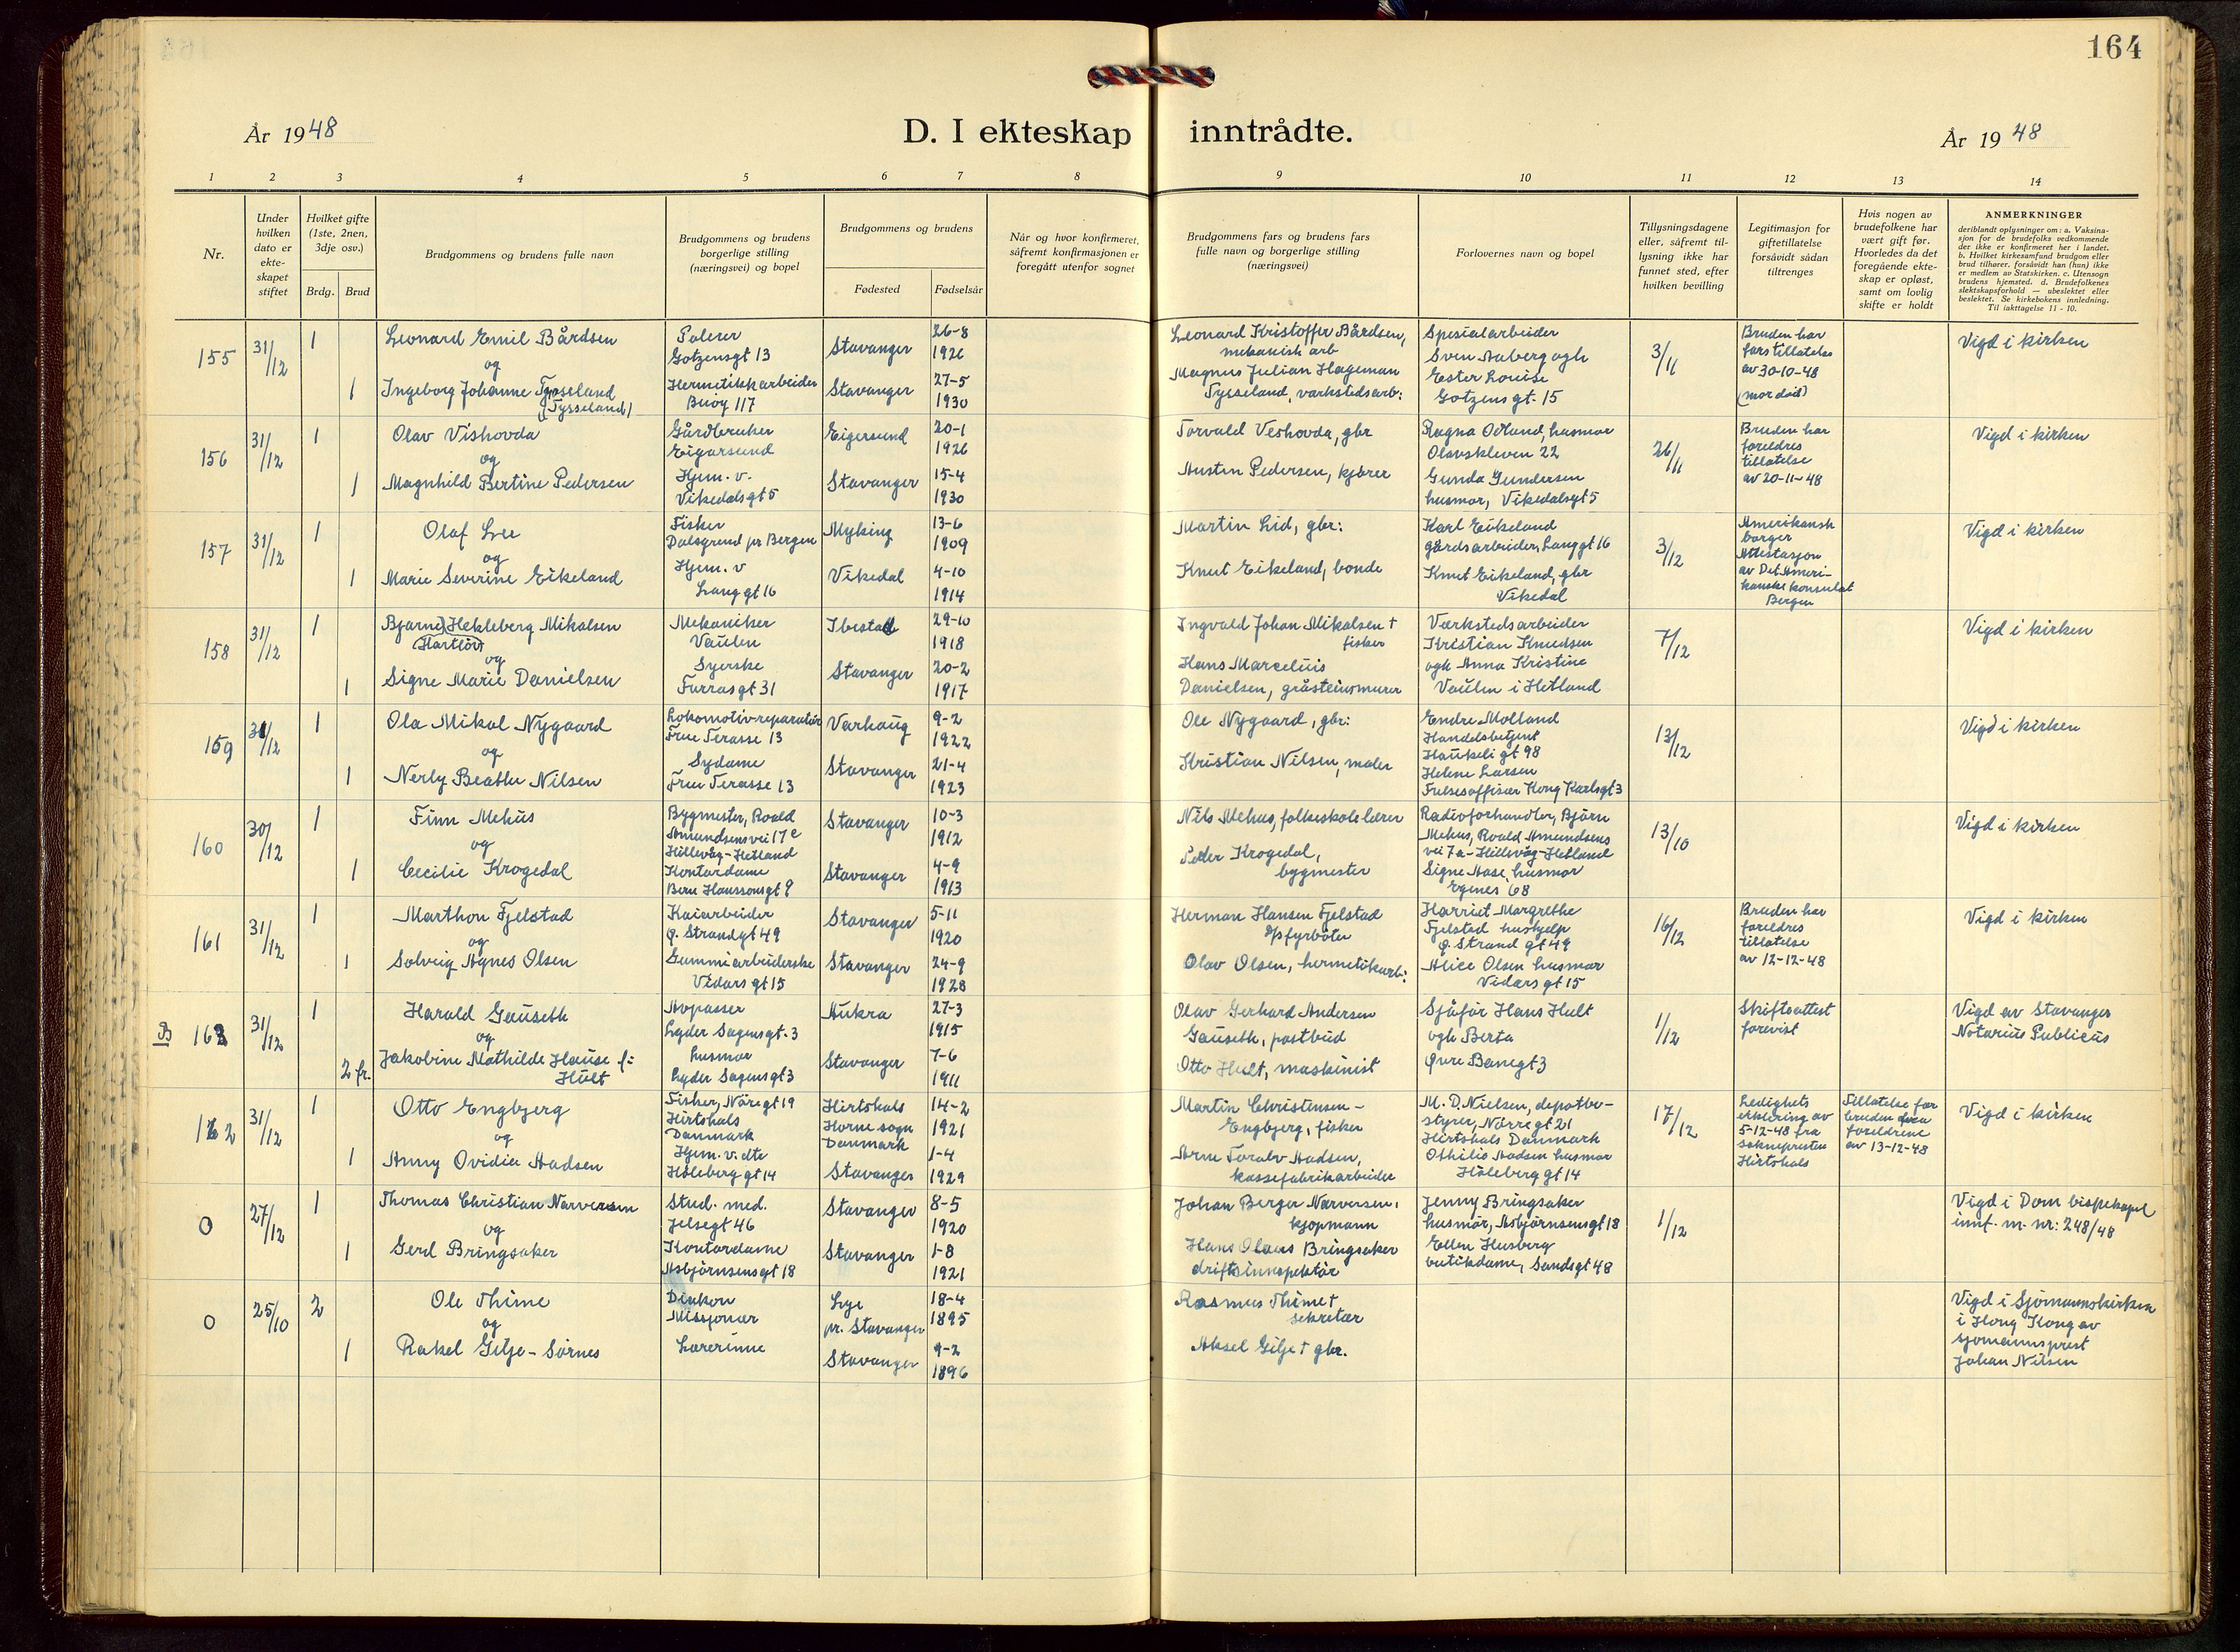 164
År 1948
D. I ekteskap inntrådte.
År 1948
1 2 3 4 5 6 7 8 9 10 11 12 13 14
Nr.
Under hvilken dato er ekte-skapet stiftet
Hvilket gifte (1ste, 2nen, 3dje osv.)
Brdg. Brud
Brudgommens og brudens fulle navn
Brudgommens og brudens borgerlige stilling (næringsvei) og bopel
Brudgommens og brudens
Fødested
Fødselsår
Når og hvor konfirmeret, såfremt konfirmasjonen er foregått utenfor sognet
Brudgommens fars og brudens fars fulle navn og borgerlige stilling (næringsvei)
Forlovernes navn og bopel
Tillysningsdagene eller, såfremt til-lysning ikke har funnet sted, efter hvilken bevilling
Legitimasjon for giftetillatelse forsåvidt sådan tiltrenges
Hvis nogen av brudefolkene har vært gift før. Hvorledes da det foregående ekte-skap er opløst, samt om lovlig skifte er holdt
ANMERKNINGER
deriblandt oplysninger om: a. Vaksina-sjon for de brudefolks vedkommende der ikke er konfirmeret her i landet. b. Hvilket kirkesamfund brudgom eller brud tilhører, forsåvidt han (hun) ikke er medlem av Statskirken. c. Utensogn brudens hjemsted. d. Brudefolkenes slektskapsforhold — ubeslektet eller beslektet. Se kirkebokens innledning. Til iakttagelse 11 - 10.
155
31/12
1
Leonard Emil Bårdsen
og
1
Ingeborg Johanne Tysseland
(Tysseland)
Polerer
Gotzensgt 13
Hermetikkarbeider
Buøy 117
Stavanger
Stavanger
26-8
1926
27-5
1930
Leonard Kristoffer Bårdsen,
mekanisk arb
Magnus Julian Hageman
Tysseland, verkstedsarb:
Spesialarbeider
Sven Aaberg ogh
Ester Louise
Gotzensgt. 15
3/11
Bruden har
fars tillatelse
av 30-10-48
(mor död)
Vigd i kirken
156
31/12
1
Olav Vishovda
og
1
Magnhild Bertine Pedersen
Gårdbruker
Eigersund
Hjem. v.
Vikedalsgt 5
Eigersund
Stavanger
20-1
1926
15-4
1930
Torvald Veshovda, gbr
Austin Pedersen, kjører
Ragna Ödland, husmor
Olavskleven 22
Gunda Gundersen
husmor, Vikedalsgt 5
26/11
Bruden har
foreldres
tillatelse
av 20-11-48
Vigd i kirken
157
31/12
1
Olaf Lee
og
1
Marie Severine Eikeland
Fisker
Dalsgrend pr Bergen
Hjem. v
Langgt 16
Myking
Vikedal
13-6
1909
4-10
1914
Martin Lid, gbr:
Knut Eikeland, bonde
Karl Eikeland
gårdsarbeider, Langgt 16
Knut Eikeland, gbr
Vikedal
3/12
Amerikansk
borger
Attestasjon
av Det Ameri-
kanske konsulat
Bergen
Vigd i kirken
158
31/12
1
Bjarne Hekleberg Mikalsen
(Hartlöv)
og
1
Signe Marie Danielsen
Mekaniker
Vaulen
Syerske
Furrasgt 31
Ibestad
Stavanger
29-10
1918
20-2
1917
Ingvald Johan Mikalsen †
fisker
Hans Marcelius
Danielsen, gråsteinsmurer
Verkstedsarbeider
Kristian Knudsen
ogh Anna Kristine
Vaulen i Hetland
7/12
Vigd i kirken
159
31/12
1
Ola Mikal Nygaard
og
1
Nerly Beathe Nilsen
Lokomotivreparatör
Frue Terasse 13
Sydame
Frue Terasse 13
Varhaug
Stavanger
9-2
1922
21-4
1923
Ole Nygaard, gbr:
Kristian Nilsen, maler
Endre Molland
Handelsbetjent
Haukeligt 98
Helene Larsen
Frelsesoffiser Kong Karlsgt 3
13/12
Vigd i kirken
160
30/12
1
Finn Mehus
og
1
Cecilie Krogedal
Bygmester, Roald
Amundsensvei 17 c
Hillevåg-Hetland
Kontordame
Bern Hanssensgt 9
Stavanger
Stavanger
10-3
1912
4-9
1913
Nils Mehus, folkeskolelærer
Peder Krogedal,
bygmester
Radioforhandler, Björn
Mehus, Roald Amundsens
vei 7a - Hillevåg-Hetland
Signe Aase, husmor
Egenes 68
13/10
Vigd i kirken
161
31/12
1
Marthon Fjelstad
og
1
Solveig Agnes Olsen
Kaiarbeider
Ø. Strandgt 49
Gummiarbeiderske
Vidarsgt 15
Stavanger
Stavanger
5-11
1920
24-9
1928
Herman Hansen Fjelstad
fyrböter
Olav Olsen, hermetikarb:
Harriet Margrethe
Fjelstad hushjelp
Ø. Strandgt 49
Alice Olsen husmor
Vidarsgt 15
16/12
Bruden har
foreldres
tillatelse
av 12-12-48
Vigd i kirken
B 163
31/12
1
Harald Gauseth
og
2 fr.
Jakobine Mathilde Hause f:
Hult
Avpasser
Lyder Sagensgt. 3
husmor
Lyder Sagensgt 3
Aukra
Stavanger
27-3
1915
7-6
1911
Olav Gerhard Andersen
Gauseth, postbud
Otto Hult, maskinist
Sjåför Hans Hult
ogh Berta
Øvre Banegt 3
1/12
Skifteattest
forevist
Vigd av Stavanger
Notarius Publicus
162
31/12
1
Otto Engbjerg
og
1
Anny Ovidia Aadsen
Fisker, Nörregt 19
Hirtshals
Danmark
Hjem. v. dtr
Håleberggt 14
Hirtshals
Horne sogn
Danmark
Stavanger
14-2
1921
1-4
1929
Martin Christensen-
Engbjerg, fisker
Arne Toralv Aadsen,
kassefabrikarbeider
M. D. Nielsen, depotbe-
styrer, Nörregt 21
Hirtshals Danmark
Othilie Aadsen husmor
Håleberggt 14
17/12
Ledighets
erklæring av
5-12-48 fra
sognepresten
Hirtshals
Tillatelse for
bruden fra
foreldrene
av 13-12-48
Vigd i kirken
0
27/12
1
Thomas Christian Narvesen
og
1
Gerd Bringsaker
Stud. med.
Jelsegt 46
Kontordame
Asbjörnsensgt 18
Stavanger
Stavanger
8-5
1920
1-8
1921
Johan Berger Narvesen,
kjøpmann
Hans Olaus Bringsaker
driftsinspektör
Jenny Bringsaker
husmor, Asbjörnsensgt 18
Ellen Husberg
butikdame, Sandsgt 48
1/12
Vigd i Dom bispekapel
innf. m. nr: 248/48
0
25/10
2
Ole Thime
og
1
Rakel Gilje-Sørnes
Diakon
Missjonær
Lærerinne
Lye
pr. Stavanger
Stavanger
18-4
1895
9-2
1896
Rasmus Thime †
sekretær
Aksel Gilje † gbr.
Vigd i Sjömannskirken
i Hong Kong av
sjömannsprest
Johan Nilsen